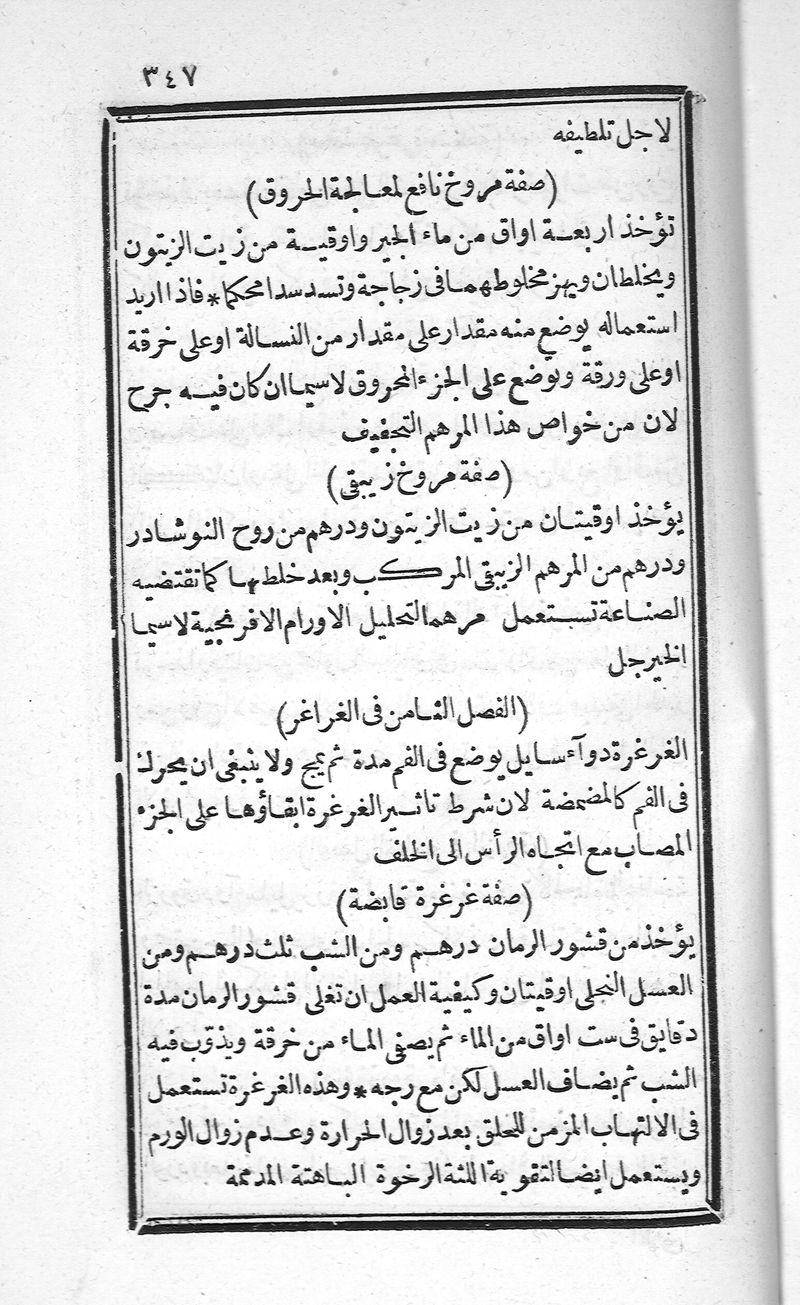 ٣٤٧
لاجل تلطيفه
(صفة مروخ نافع لمعالجة الحروق)
تؤخذ اربعة اواق من ماء الجير واوقية من زيت الزيتون
ويخلطان ويهز مخلوطهما فى زجاجة وتسد سدا محكما * فاذا اريد
استعماله يوضع منه مقدار على مقدار من النسالة او على خرقة
او على ورقة وتوضع على الجزء المحروق لاسيما ان كان فيه جرح
لان من خواص هذا المرهم التجفيف
(صفة مروخ زيبقى)
يؤخذ اوقيتان من زيت الزيتون ودرهم من روح النوشادر
ودرهم من المرهم الزيبقى المركب وبعد خلطها كما تقتضيه
الصناعة تستعمل مرهما لتحليل الاورام الافرنجية لاسيما
الخيرجل
(الفصل الثامن فى الغراغر)
الغرغرة دوآء سايل يوضع فى الفم مدة ثم يمج ولا ينبغى ان يحرك
فى الفم كالمضمضة لان شرط تاثير الغرغرة ابقاؤها على الجزء
المصاب مع اتجاه الرأس الى الخلف
(صفة غرغرة قابضة)
يؤخذ من قشور الرمان درهم ومن الشب ثلث درهم ومن
العسل النحلى اوقيتان وكيفية العمل ان تغلى قشور الرمان مدة
دقايق فى ست اواق من الماء ثم يصفى الماء من خرقة ويذوّب فيه
الشب ثم يضاف العسل لكن مع رجه * وهذه الغرغرة تستعمل
فى الالتهاب المزمن للحلق بعد زوال الحرارة وعدم زوال الورم
ويستعمل ايضا لتقوية اللثة الرخوة الباهتة المدممة